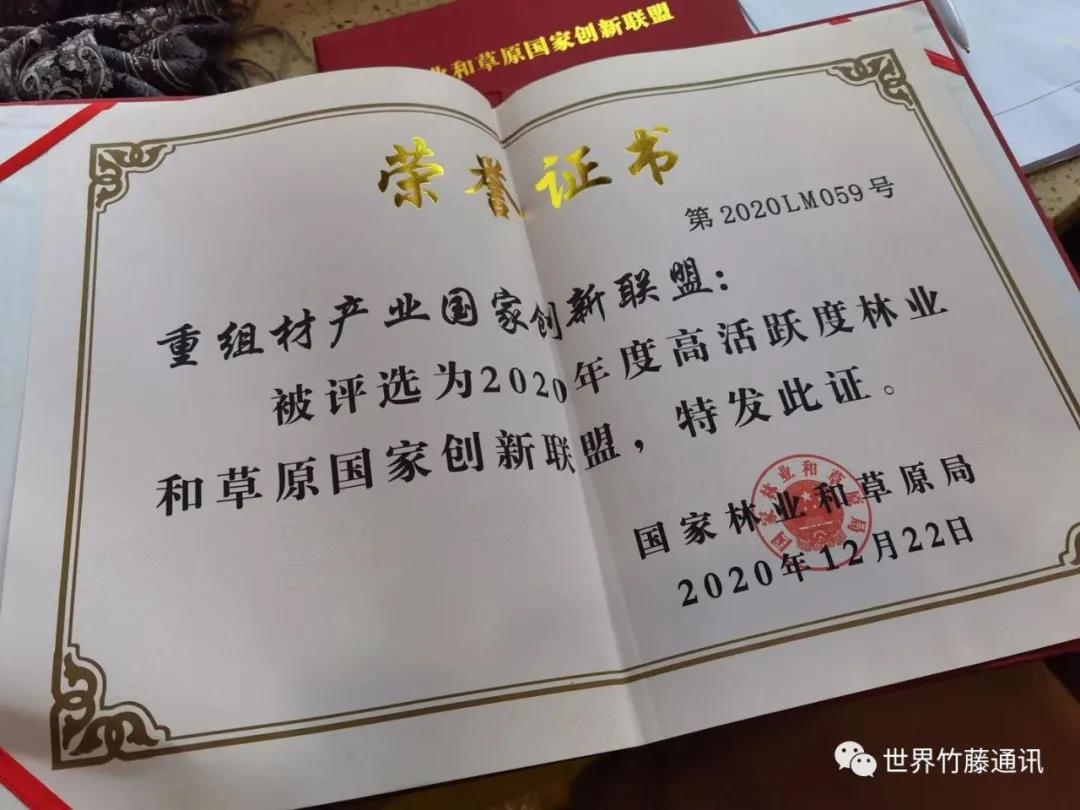 业和草原国家创新联盟
荣誉证书
第2020LM059号
重组材产业国家创新联盟：
被评选为2020年度高活跃度林业
和草原国家创新联盟，特发此证。
国家林业和草原局
国家林业和草原局
2020年12月22日
世界竹藤通讯